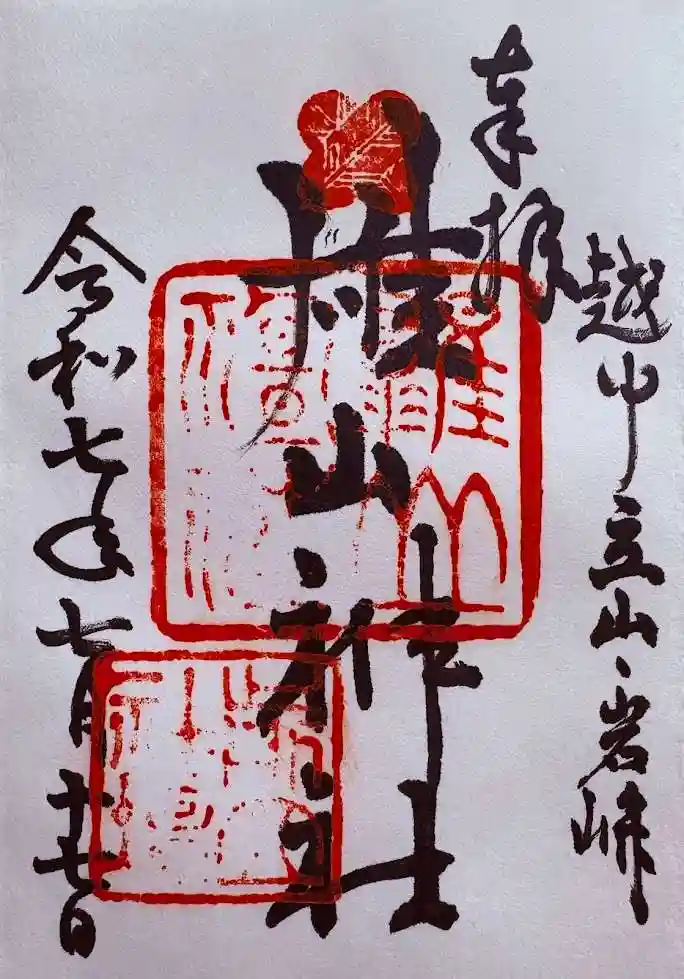 越中立山、岩峅
奉拝
雄山神社
令和七年七月十七日